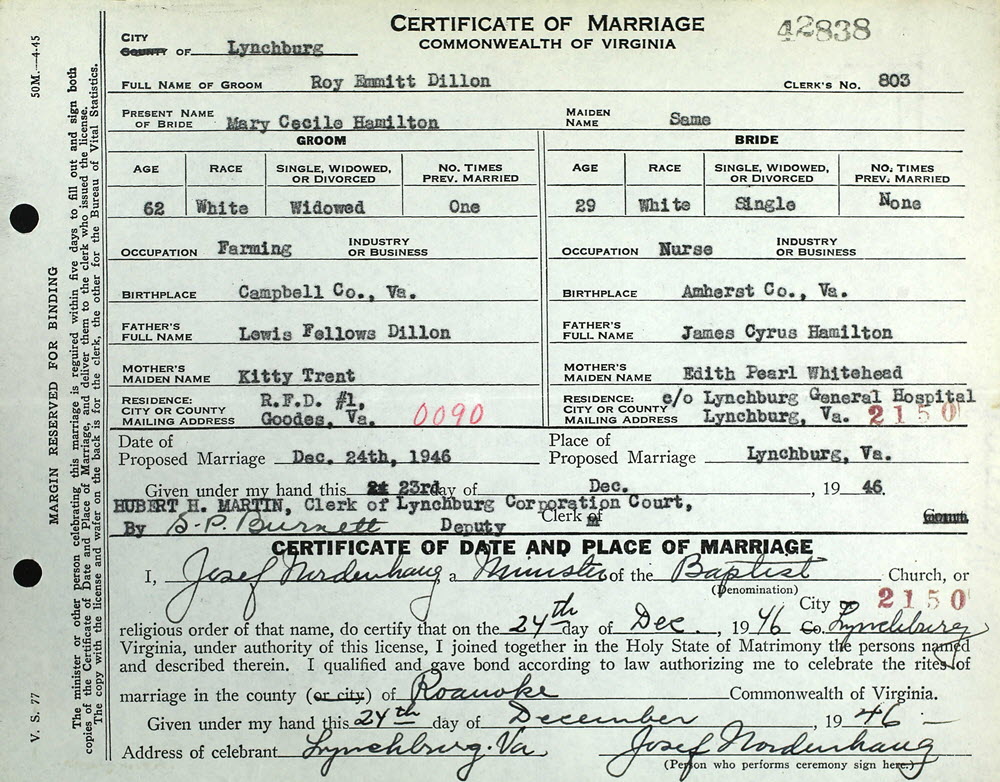 CERTIFICATE OF MARRIAGE
COMMONWEALTH OF VIRGINIA
42838
CITY
COUNTY OF Lynchburg
FULL NAME OF GROOM Roy Emmitt Dillon CLERK'S NO. 803
PRESENT NAME OF BRIDE Mary Cecile Hamilton MAIDEN NAME Same
GROOM BRIDE
AGE RACE SINGLE, WIDOWED, OR DIVORCED NO. TIMES PREV. MARRIED AGE RACE SINGLE, WIDOWED, OR DIVORCED NO. TIMES PREV. MARRIED
62 White Widowed One 29 White Single None
OCCUPATION Farming INDUSTRY OR BUSINESS OCCUPATION Nurse INDUSTRY OR BUSINESS
BIRTHPLACE Campbell Co., Va. BIRTHPLACE Amherst Co., Va.
FATHER'S FULL NAME Lewis Fellows Dillon FATHER'S FULL NAME James Cyrus Hamilton
MOTHER'S MAIDEN NAME Kitty Trent MOTHER'S MAIDEN NAME Edith Pearl Whitehead
RESIDENCE: R.F.D. #1, RESIDENCE: c/o Lynchburg General Hospital
CITY OR COUNTY MAILING ADDRESS Goodes, Va. 0090 CITY OR COUNTY MAILING ADDRESS Lynchburg, Va. 2150
Date of Proposed Marriage Dec. 24th, 1946 Place of Proposed Marriage Lynchburg, Va.
Given under my hand this 23rd day of Dec. , 19 46
HUBERT H. MARTIN, Clerk of Lynchburg Corporation Court,
By S. P. Burnett Deputy Clerk of Court
CERTIFICATE OF DATE AND PLACE OF MARRIAGE
I, Josef Nordenhaug a Minister of the Baptist Church, or
(Denomination)
City or 2150
religious order of that name, do certify that on the 24th day of Dec. , 1946 Co. Lynchburg
Virginia, under authority of this license, I joined together in the Holy State of Matrimony the persons named
and described therein. I qualified and gave bond according to law authorizing me to celebrate the rites of
marriage in the county (or city) of Roanoke Commonwealth of Virginia.
Given under my hand this 24th day of December , 19 46
Address of celebrant Lynchburg. Va Josef Nordenhaug
(Person who performs ceremony sign here.)
V. S. 77 MARGIN RESERVED FOR BINDING 50M.—4-45
The minister or other person celebrating this marriage is required within five days to fill out and sign both
copies of the Certificate of Date and Place of Marriage, and deliver them to the clerk who issued the license.
The copy with the license and wafer on the back is for the clerk, the other for the Bureau of Vital Statistics.